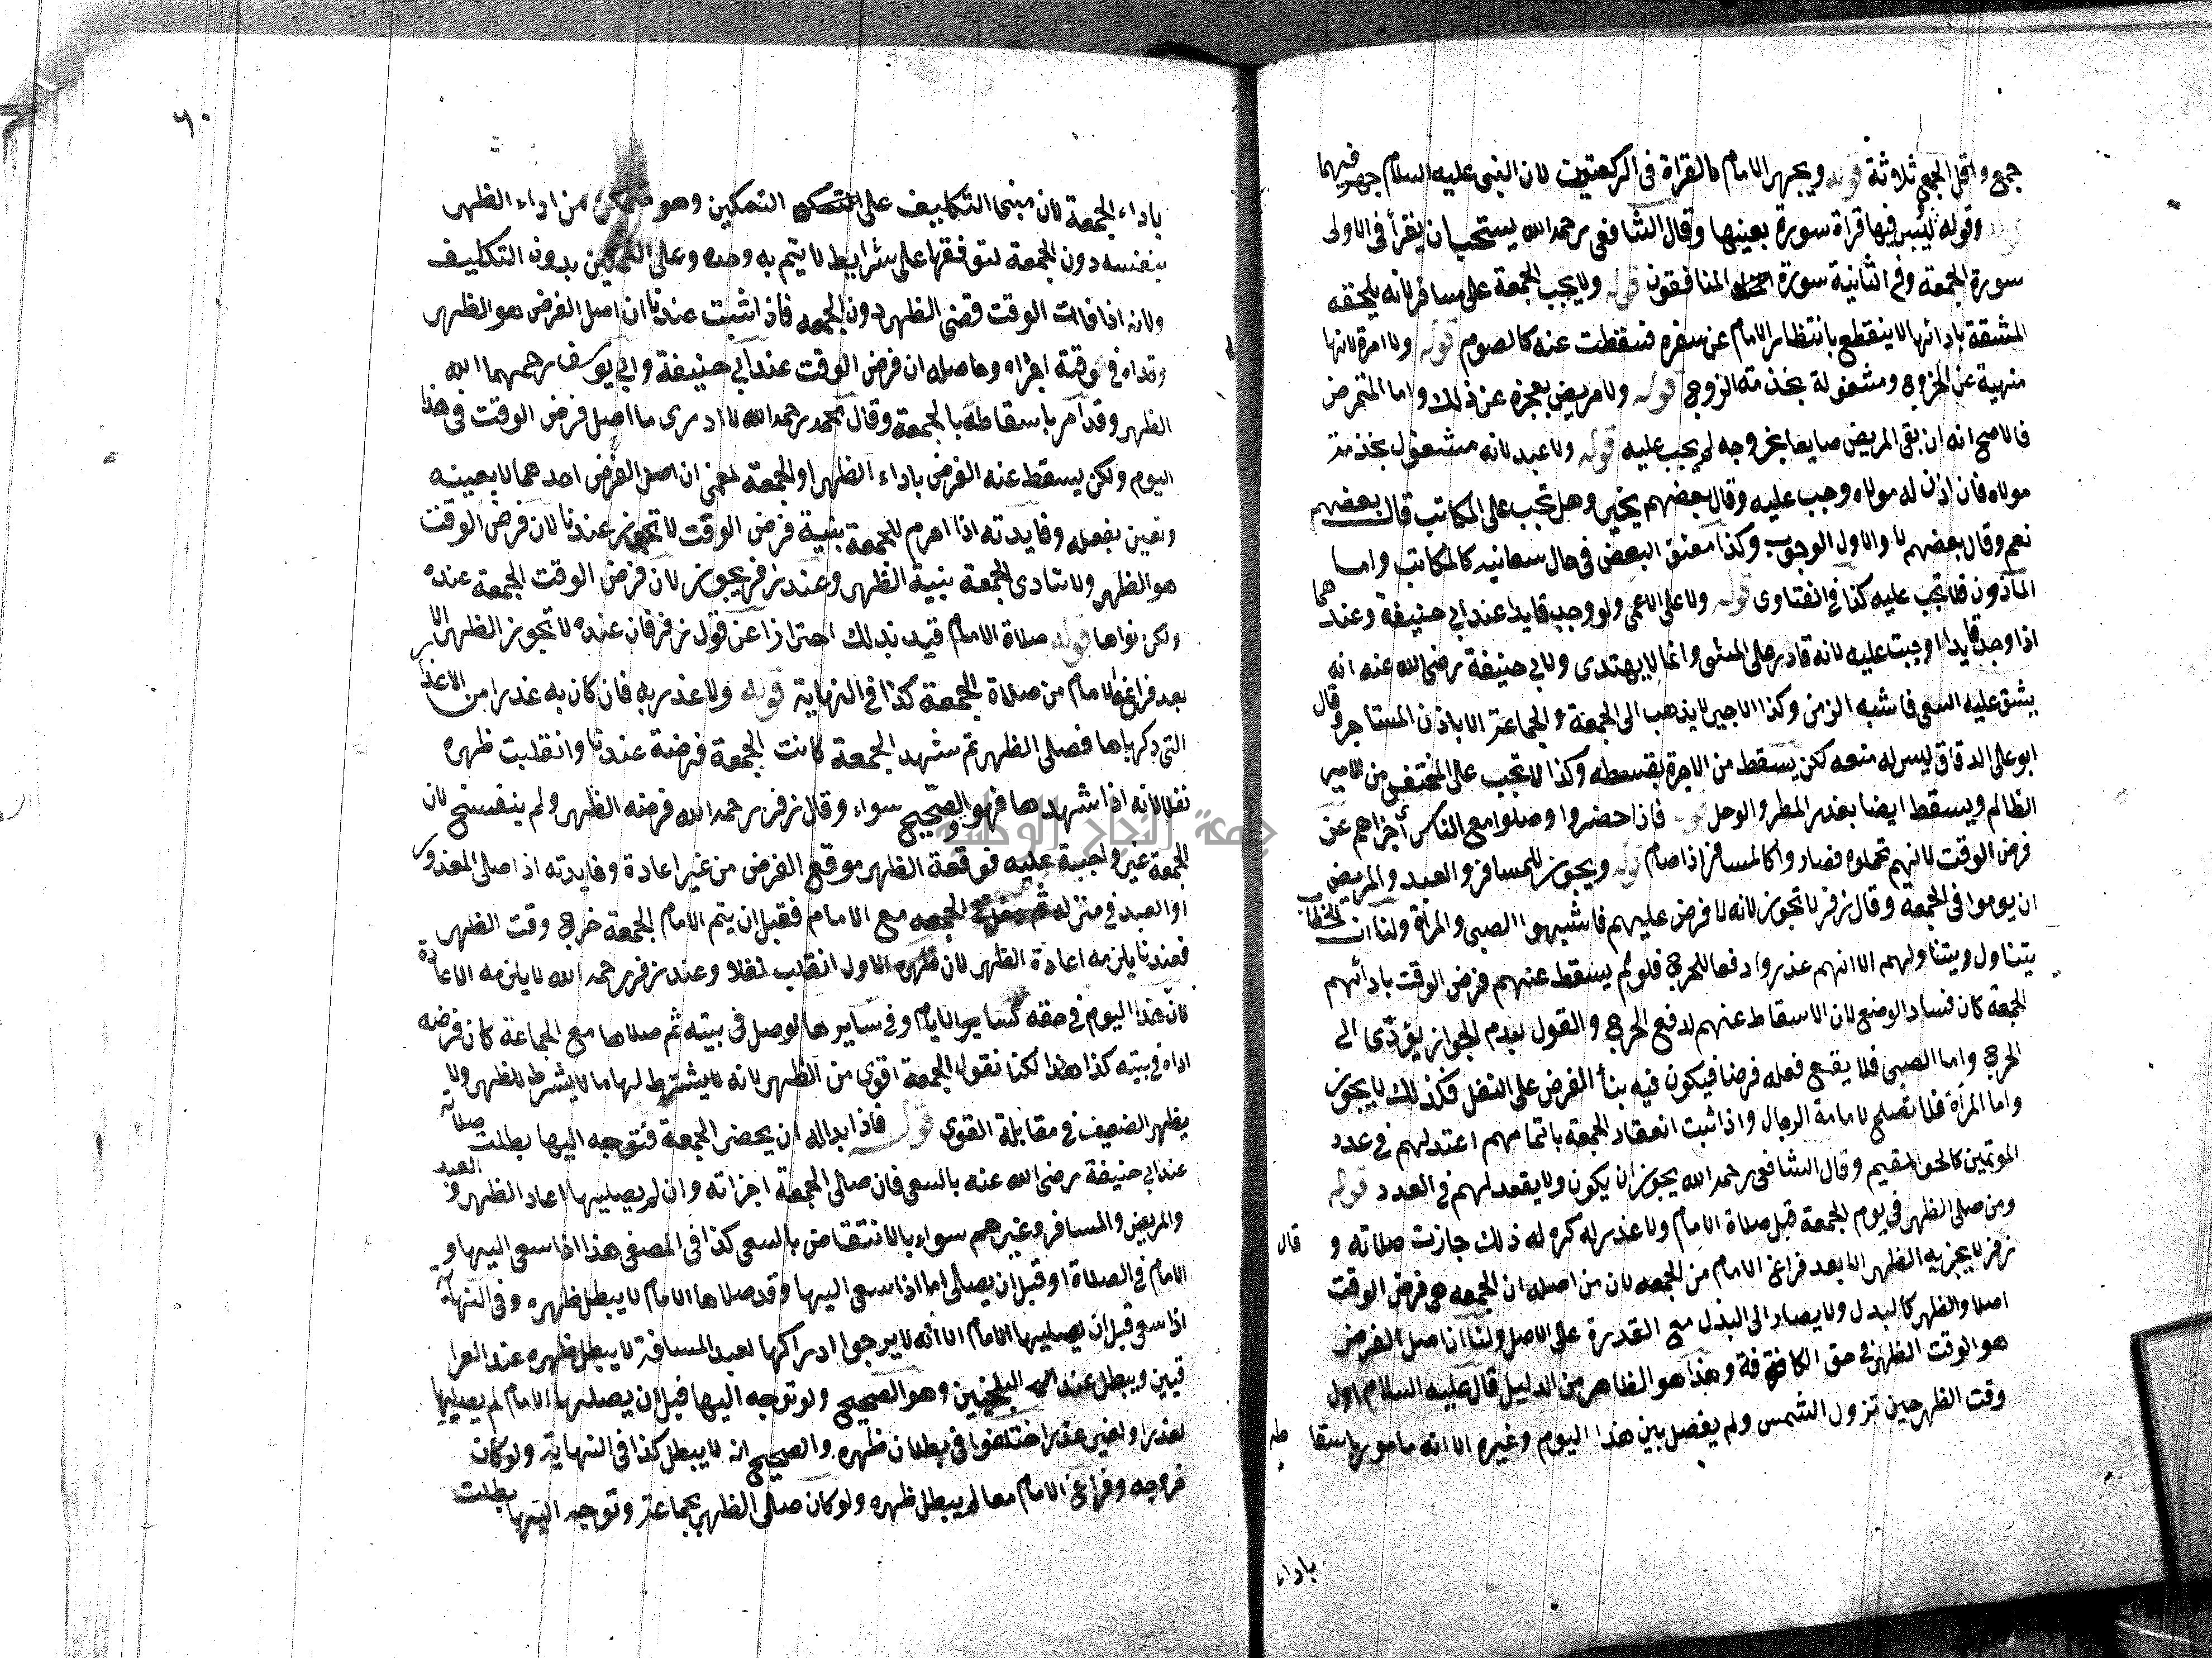 جمع واقل الجمع ثلاثة قوله ويجهر الامام بالقراة في الركعتين لان النبي عليه السلام جهر فيهما
وقوله ليس فيها قراة سورة بعينها وقال الشافعي رحمه الله يستحب ان يقرأ في الاولى
سورة الجمعة وفي الثانية سورة المنافقون قوله ولا يجب الجمعة على مسافر لانه يلحقه
المشقة بادائها لا ينقطع بانتظار الامام عن سفره فسقطت عنه كالصوم قوله ولا امرة لانها
منهية عن الخروج ومشغولة بخذمة الزوج قوله ولا مريض بعجزه عن ذلك واما المتمرض
فالاصح انه ان بقى المريض ضايعا بخروجه لم يجب عليه قوله ولا عبد لانه مشغول بخذمة
مولاه فان اذن له مولاه وجب عليه وقال بعضهم يخير وهل تجب على المكاتب قال بعضهم
نعم وقال بعضهم لا والاول الوجوب وكذا معتق البعض في حال سعايته كالمكاتب واما
المأذون فلا تجب عليه كذا في الفتاوى قوله ولا على الاعمى ولو وجد قايدا عند ابي حنيفة وعندهما
اذا وجد قايدا وجبت عليه لانه قادر على المشى وانما لا يهتدى ولابي حنيفة رضى الله عنه انه
يشق عليه السعى فاشبه الزمن وكذا الاجير لا يذهب الى الجمعة والجماعة الا باذن المستاجر وقال
ابو على الدقاق ليس له منعه لكن يسقط من الاجرة بقسطه وكذا لا تجب على المختفى من الامير
الظالم ويسقط ايضا بعذر المطر والوحل قوله فاذا حضروا وصلوا مع الناس أجزاهم عن
فرض الوقت لانهم تحملوه فصاروا كالمسافر اذا صام قوله ويجوز للمسافر والعبد والمريض
ان يوموا في الجمعة وقال زفر لا تجوز لانه لا فرض عليهم فاشبهوا الصبى والمرأة ولنا ان الخطاب
يتناول ويتناولهم الا انهم عذروا دفعا للحرج فلو لم يسقط عنهم فرض الوقت بادائهم
الجمعة كان فساد الوضع لان الاسقاط عنهم لدفع الحرج والقول بعدم الجواز يؤدى الى
الحرج واما الصبى فلا يقع فعله فرضا فيكون فيه بنأ الفرض على النفل فكذلك لا يجوز
واما المرأة فلا تصلح لامامة الرجال واذا ثبت انعقاد الجمعة بائتمامهم اعتد لهم في عدد
الموتمين كالحر المقيم وقال الشافعى رحمه الله يجوز ان يكون ولا يقعد لهم في العدد قوله
ومن صلى الظهر في يوم الجمعة قبل صلاة الامام ولا عذر له كره له ذلك جازت صلاته وقال
زفر لا يجزيه الظهر الا بعد فراغ الامام من الجمعه لان من اصله ان الجمعه هي فرض الوقت
اصلا والظهر كالبدل ولا يصار الى البدل مع القدرة على الاصل ولنا ان اصل الفرض
هو الوقت الظهر في حق الكافة وهذا هو الظاهر من الدليل قال عليه السلام اول
وقت الظهر حين تزول الشمس ولم يفصل بين هذا اليوم وغيره الا انه مامور باسقاطه
باداء
٦٠
باداء الجمعة لان مبنى التكليف على التمكين وهو متمكن من اداء الظهر
بنفسه دون الجمعة لتوقفها على شرايط لا يتم به وحده وعلى التمكين بدون التكليف
ولانه اذا فات الوقت قضى الظهر دون الجمعه فاذا ثبت عندنا ان اصل الفرض هو الظهر
وقد اه في وقته اجزاه وحاصله ان فرض الوقت عند ابي حنيفة وابي يوسف رحمهما الله
الظهر وقد أمر باسقاطه بالجمعة وقال محمد رحمه الله لا ادرى ما اصل فرض الوقت في هذا
اليوم ولكن يسقط عنه الفرض باداء الظهر او الجمعة لمعنى ان اصل الفرض احدهما لا بعينه
وتعين بفعله وفايدته اذا احرم للجمعة بنية فرض الوقت لا تجوز عندنا لان فرض الوقت
هو الظهر ولا تتادى الجمعة بنية الظهر وعند زفر يجوز لان فرض الوقت الجمعة عنده
ولكن نواها قوله صلاة الامام قيد بذلك احترازا عن قول زفر فان عنده لا تجوز الظهر الا
بعد فراغ الامام من صلاة الجمعة كذا في النهاية قوله ولا عذر به فان كان به عذرا من الاعذار
التي ذكرناها فصلى الظهر ثم شهد الجمعة كانت الجمعة فرضة عندنا وانقلبت ظهره
نفلا لانه اذا شهدها فهو والصحيح سواء وقال زفر رحمه الله فرضه الظهر ولم ينفسخ لان
الجمعة غير واجبة عليه فوقعة الظهر موقع الفرض من غير اعادة وفايدته اذ اصلى المعذور
او العبد في منزله ثم الجمعه مع الامام فقبل ان يتم الامام الجمعة خرج وقت الظهر
فعندنا يلزمه اعادة الظهر لان ظهره الاول انقلب نفلا وعند زفر رحمه الله لا يلزمه الاعادة
لان هذا اليوم في حقه كساير الايام وفي سايرها لو صلى في بيته ثم صلاها مع الجماعة كان فرضه
اداه في بيته كذا هذا لكنا نقول الجمعة اقوى من الظهر لانه لا يشترط لها ما لا يشرط للظهر ولا
يظهر الضعيف في مقابلة القوى قوله فاذا بدا له ان يحضر الجمعة فتوجه اليها بطلت صلاته
عند ابي حنيفة رضى الله عنه بالسعى فان صلى الجمعة اجزاته وان لم يصليها اعاد الظهر والعبد
والمريض والمسافر وغيرهم سواء بالانتقاض بالسعى كذا في المصفى هذا اذا سعى اليها و
الامام في الصلاة او قبل ان يصلى اما اذا سعى اليها وقد صلاها الامام لا يبطل ظهره وفي النهاية
اذا سعى قبل ان يصليها الامام الا انه لا يرجوا ادراكها لبعد المسافة لا يبطل ظهره عند العرا
قيين ويبطل عند البلخيين وهو الصحيح ولو توجه اليها قبل ان يصليها الامام لم يصليها
لعذر او لغير عذر اختلفوا في بطلان ظهره والصحيح انه لا يبطل كذا في النهاية ولو كان
خروجه وفراغ الامام معا لم يبطل ظهره ولو كان صلى الظهر بجماعة وتوجه اليها بطلت
جامعة النجاح الوطنية